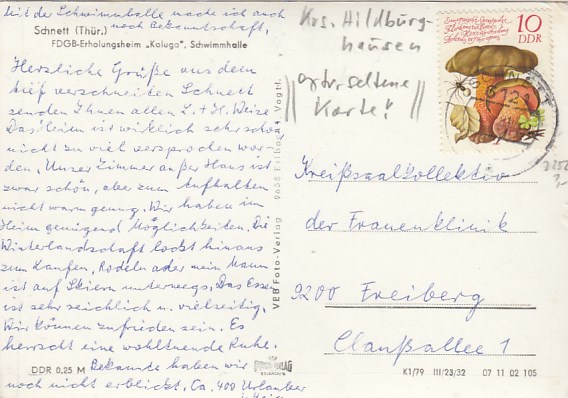 Mit der Schwimmhalle mache ich auch
noch Bekanntschaft.
Schnett (Thür.)
FDGB-Erholungsheim „Kaluga", Schwimmhalle
Herzliche Grüße aus dem
tief verschneiten Schnett
senden Ihnen allen L. + H. Weise
Das Heim ist wirklich sehr schön,
nicht zu viel versprochen wor-
den. Unser Zimmer außer Haus ist
zwar schön, aber zum Aufhalten
nicht warm genug. Wir haben im
Heim genügend Möglichkeiten. Die
Winterlandschaft lockt hinaus
zum Laufen, Rodeln oder mein Mann
ist auf Skiern unterwegs. Das Essen
ist sehr reichlich u. vielseitig.
Wir können zufrieden sein. Es
herrscht eine wohltuende Ruhe.
Bekannte haben wir
noch nicht erblickt. Ca. 400 Urlauber
DDR 0,25 M
VEB Foto-Verlag 9653 Erlbach i. Vogtl.
Krs. Hildburg-
hausen
seltene
Karte!
10
DDR
Kreißsaalkollektiv
der Frauenklinik
9200 Freiberg
Claußallee 1
K1/79 III/23/32 07 11 02 105